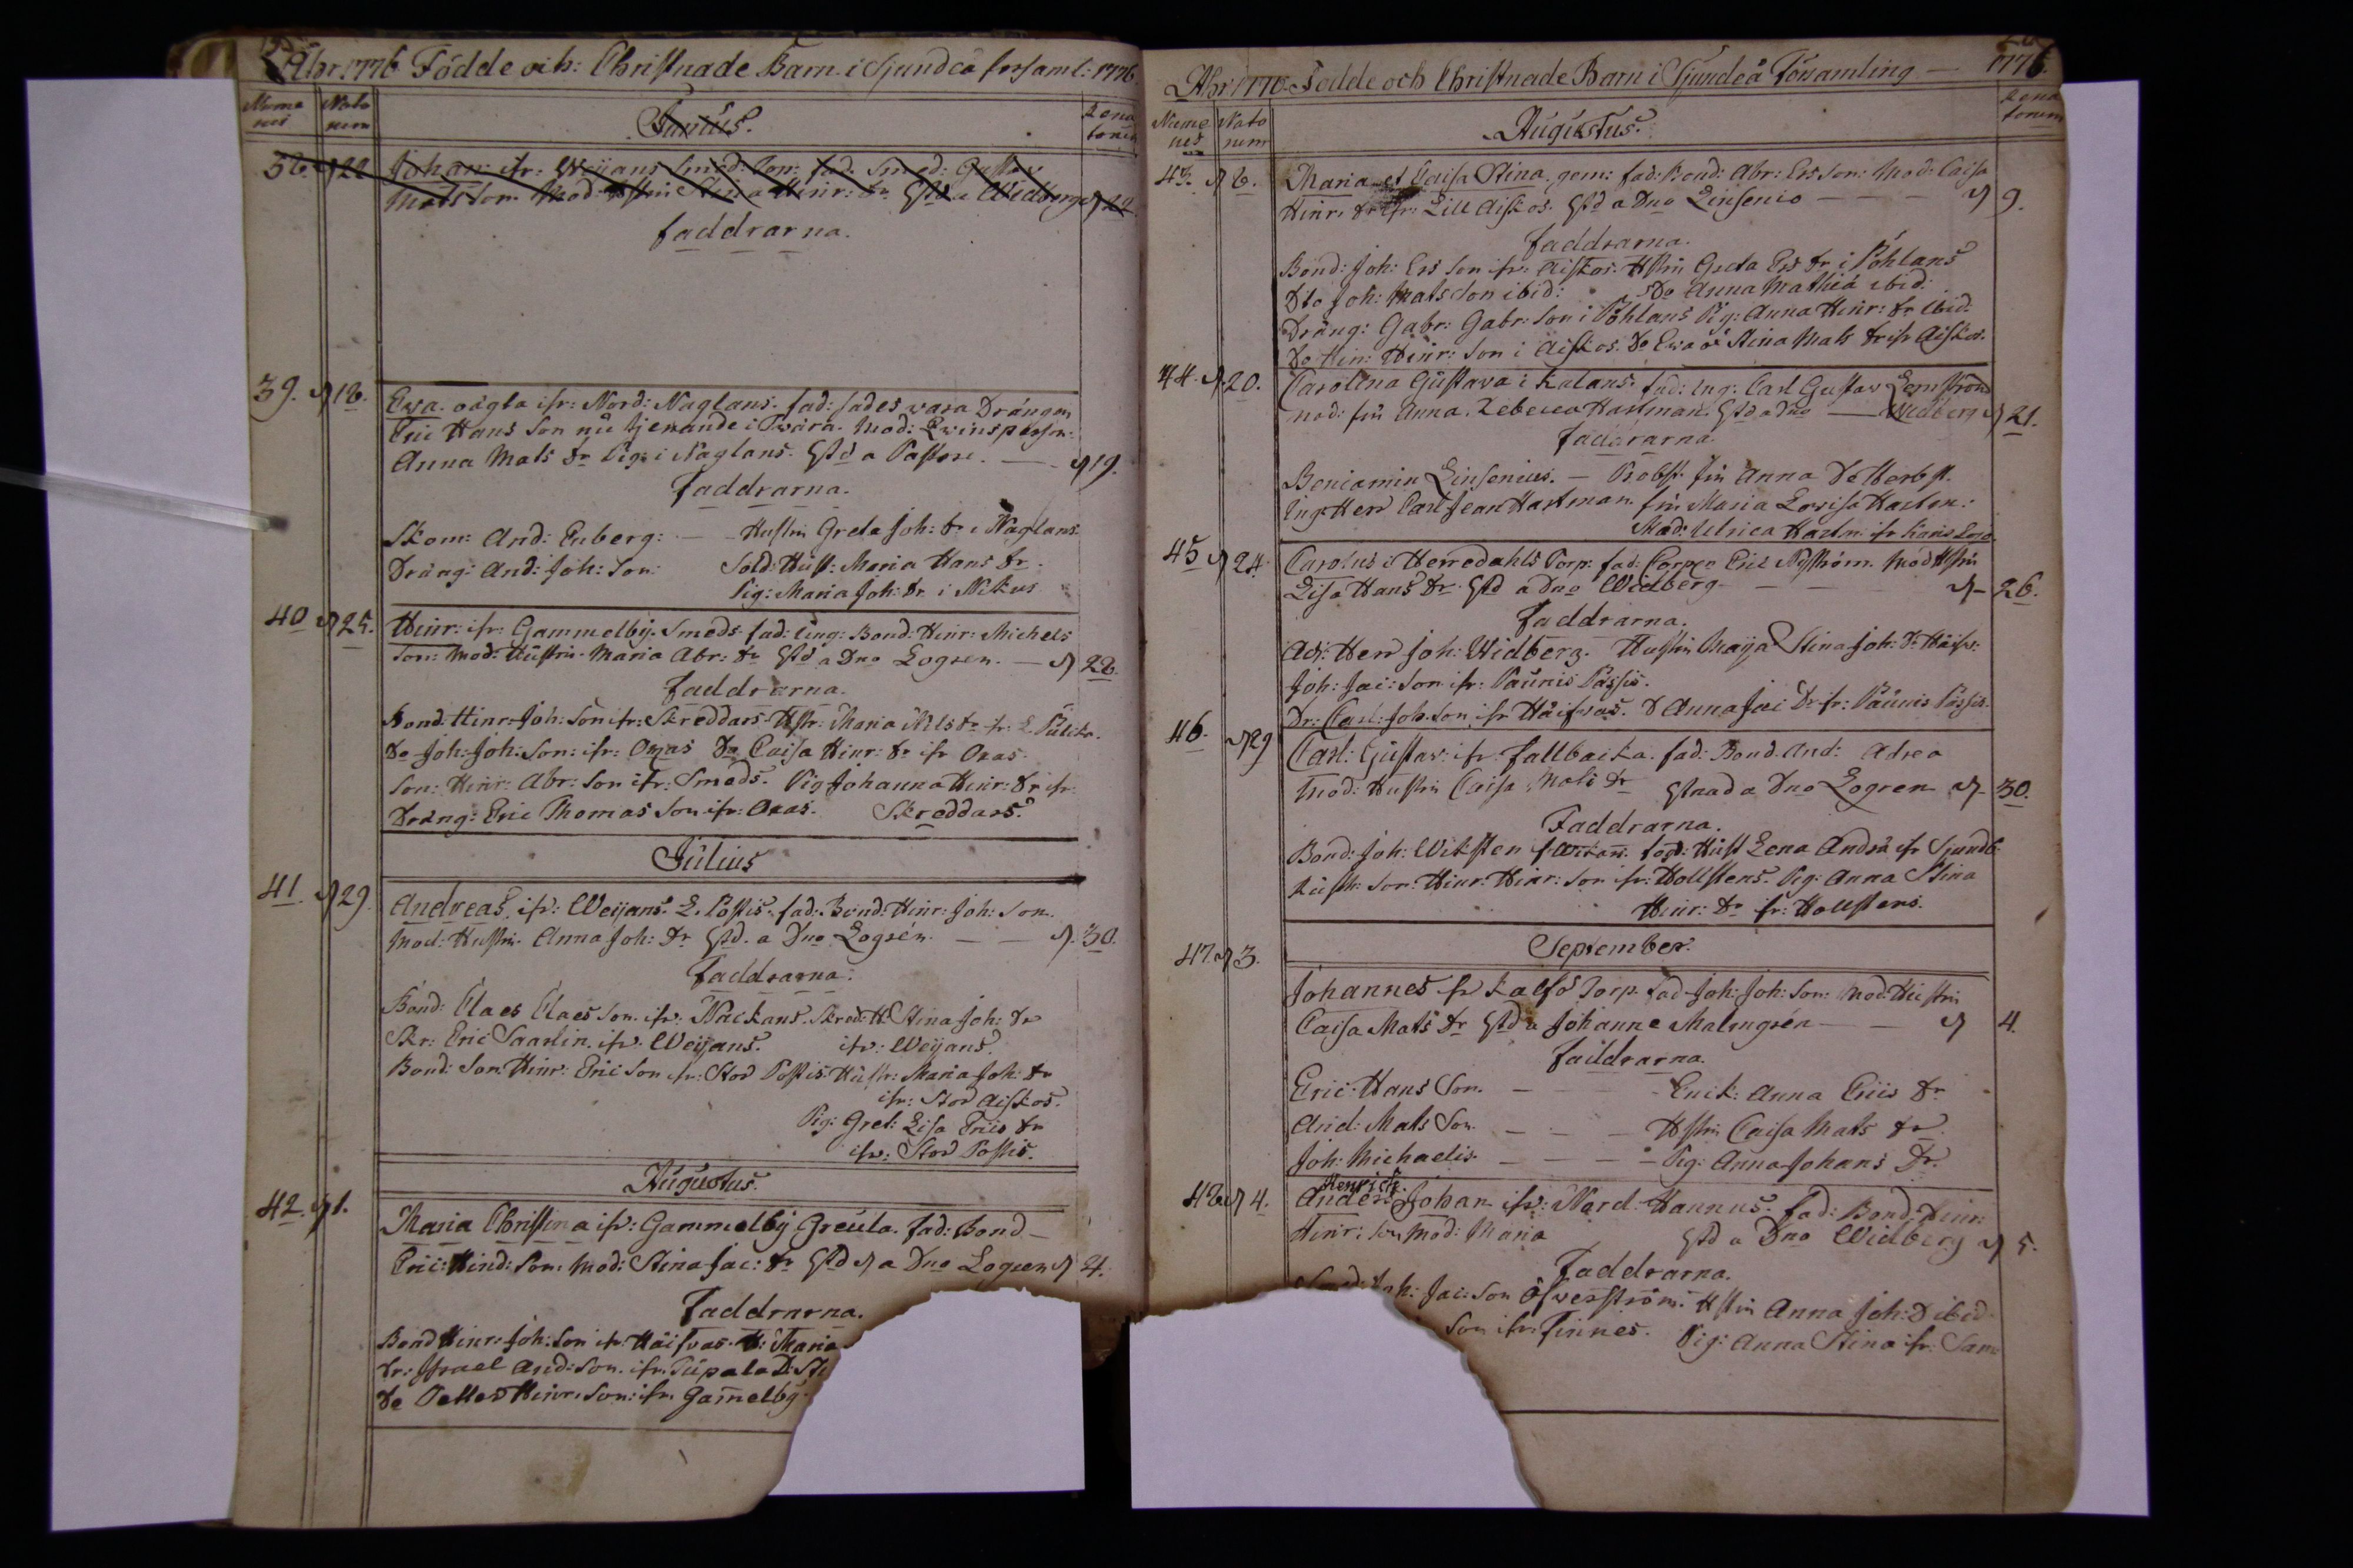 Åhr 1776 Födde och: Christnade Barn i Sjundeå forsaml: 1776.
Nume rus
Nato rum
Junius.
Rena torum
38. d 22
Johan: ifr: Weijans Smed: Son: fad: Smed: Gustav
Mats Son Mod: Hstru Stina Hinr: dr Gstd a Widberg d 22.
faddrarna.
39. d 18.
Ewa oägta ifr: Nord: Naglans. fad: sades vara Drängen
Eric Hans Son nu tjenande i Svära. Mod: Qwinsperson:
Anna Mats dr Piga i Naglans. Gstd a Pastore. — d 19.
Faddrarna.
Skom: And: Enberg: — Hustru Greta Joh: dr i Naglans.
Dräng: And: Joh: Son. Sold: Hust: Maria Hans dr.
Pig: Maria Joh: dr i Nikus
40 d 25.
Hinr: ifr: Gammelby. Smeds. fad: Ung: Bond: Hinr: Michels
Son: Mod: Hustru Maria Abr: dr Gstd a Dno Logren. — d 28.
Faddrarna.
Bond. Hinr: Joh: Son ifr: Skreddars Hstr: Maria Nils dr fr: L. Pulika.
Do Joh: Joh: Son: ifr: Oxas Do Caisa Hinr: dr ifr Oxas.
Son: Hinr: Abr: Son ifr: Smeds. Pig Johanna Hinr: dr ifr:
Dräng: Eric Thomas Son ifr: Oxas. Skreddars.
Julius
41. d 29.
Andreas, ifr: Weijans L. Postis. fad: Bond: Hinr: Joh: Son.
Mod: Hustru Anna Joh: dr Gstd. a Dno Logrén. — — d. 30.
Faddrarna.
Bond: Claes Claes Son. ifr: Nackans. Skred: H: Stina Joh: dr
Skr: Eric Saarlin. ifr: Weijans. ifr: Weijans.
Bond: Son Hinr: Eric Son ifr: Stor Postis Hustr: Maria Joh: dr
ifr: Stor Aiskos.
Pig: Gret: Lisa Eriis dr
ifr: Stor Postis.
Augustus.
42. d 1.
Maria Christina ifr: Gammelby Greula. fad: Bond —
Eric: Hind: Son. Mod: Stina Jac: dr Gstd d a Dno Logren d 4.
Faddrarna.
Bond Hinr: Joh: Son ifr: Häifvas. H: Maria
Dr: Israel And: Son. ifr. Supala D: Sti
Do Petter Hinr: Son: ifr. Gam̄elby
Åhr 1776 Födde och Christnade Barn i Sjundeå Församling — 1776.
Nume rus
Nato rum
Augustus.
Rena torum
43. d 6.
Maria et Caisa Stina gem: fad: Bond: Abr: Ers Son: Mod: Caisa
Hinr: dr ifr: Lill Aiskos. Gstd a Dno Linsenio — — — d 9.
faddrarna.
Bond: Joh: Ers Son ifr: Aiskos. Hstru Greta Ers dr i Pohlans
Dto Joh: Mats Son ibid: Do Anna Mathiæ ibid:
Dräng: Gabr: Gabr: Son i Pohlans Pig: Anna Hinr: dr ibid.
Do Hin: Hinr: Son i Aiskos. Do Ewa o Stina Mats dr ifr Aiskos.
44. d 20.
Carolina Gustava i Kalans. fad: Ing: Carl Gustav Lemström
mod: fru Anna Rebecca Hartman. Gstd a Dno — Widberg d 21.
faddrarna.
Beniamin Linsenius. — Probst. fru Anna De Herbst.
Ing: Herr Carl Jean Hartman. fru Maria Lovisa Hartm:
Mad: Ulrica Hartm: ifr Karis Lojo
45 d 24.
Carolus i Herredahls Torp. fad: Corper Eric Nyström. Mod Hstru
Lisa Hans dr Gstd a Dno Widberg — — — d — 26.
faddrarna.
Adj: Herr Joh: Widberg. Hustru Maija Stina Joh: dr Häifv:
Joh: Jac: Son ifr: Paunis Passis.
Dr: Carl: Joh. Son ifr Häifvas. D Anna Jac Dr fr: Paunis Passis.
46. d 29
Carl: Gustav: ifr: Fallbacka. fad: Bond. And: Adrea
Mod: Hustru Caisa Mats dr Gstaad a Dno Logren d — 30.
Faddrarna.
Bond: Joh: Wiksten f Wickars. Sold: Hust Lena Andræ ifr Sjundb:
Rusth: Son: Hinr: Hinr: Son ifr: Hollstens. Pig: Anna Stina
Hinr: dr fr: Hollstens.
September.
47. d 3.
Johannes fr Kalfs Torp. fad Joh: Joh: Son: Mod: Hustru
Caisa Mats dr Gstd a Johanne Malmgrén — — d 4.
faddrarna.
Eric Hans Son. — — Enck: Anna Eriis dr
And: Mats Son. — — — Hstru Caisa Mats dr
Joh: Michaelis. — — — — Pig: Anna Johans Dr.
48 d 4.
Henrich.
Anders Johan ifr: Nord: Hannus. fad: Bond: Hinr:
Hinr: Son Mod: Maria Gstd a Dno Widberg d 5.
Faddrarna.
Joh: Jac: Son Öfverström. Hstru Anna Joh: D ibid.
Son ifr: Finnes. Pig: Anna Stina ifr: Sam